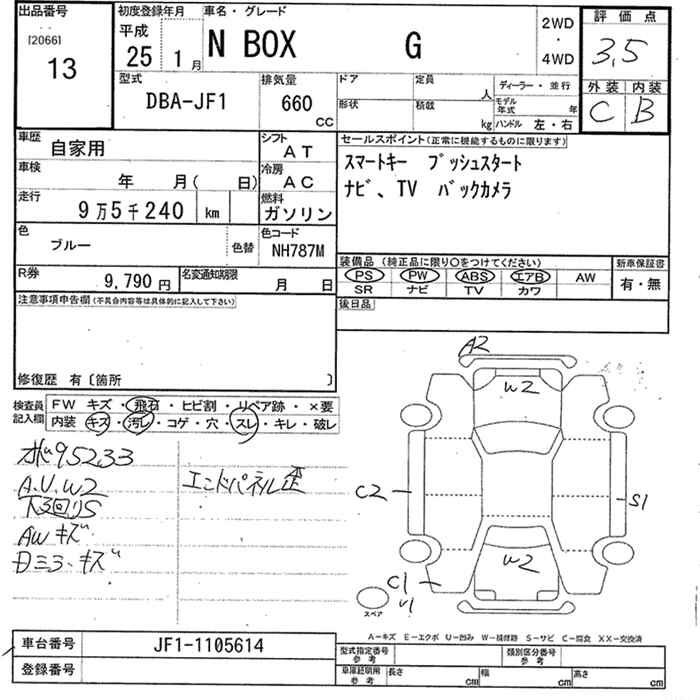 出品番号
[2066]
13
初度登録年月
平成
25 1月
車名・グレード
N BOX G
2WD
・
4WD
評価点
3,5
外装 内装
C B
型式
DBA-JF1
排気量
660
CC
ドア
形状
定員
人
積載
kg
ディーラー・並行
モデル年式 年
ハンドル 左・右
車歴
自家用
シフト
AT
車検
年 月( 日)
冷房
AC
走行
9万5千240 km
燃料
ガソリン
色
ブルー
色替
色コード
NH787M
R券
9,790円
名変通知期限
月 日
セールスポイント(正常に機能するものに限ります)
スマートキー プッシュスタート
ナビ、TV バックカメラ
装備品(純正品に限り○をつけてください)
PS PW ABS エアB AW
SR ナビ TV カワ
新車保証書
有・無
後日品
注意事項申告欄(不具合内容等は具体的に記入して下さい)
修復歴 有〔箇所 〕
検査員記入欄
FW キズ・飛石・ヒビ割・リペア跡・×要
内装 キズ・汚レ・コゲ・穴・スレ・キレ・破レ
ホ95233
A.U.W2
下回りS
AWキズ
日ミラーキズ
エンドパネル歪
A2
W2
C2
S1
W2
C1
U1
スペア
A-キズ E-エクボ U-凹み W-補修跡 S-サビ C-腐食 XX-交換済
車台番号
JF1-1105614
登録番号
型式指定番号
参考
類別区分番号
参考
車庫証明用
参考
長さ cm
幅 cm
高さ cm